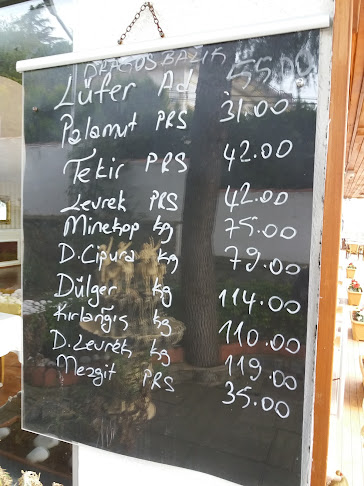 DRAGOS BALIK
Lüfer Ad 55.00
Palamut PRS 31.00
Tekir PRS 42.00
Levrek PRS 42.00
Minekop kg 75.00
D.Cipura kg 79.00
Dülger kg 114.00
Kırlangıç kg 110.00
D.Levrek kg 119.00
Mezgit PRS 35.00